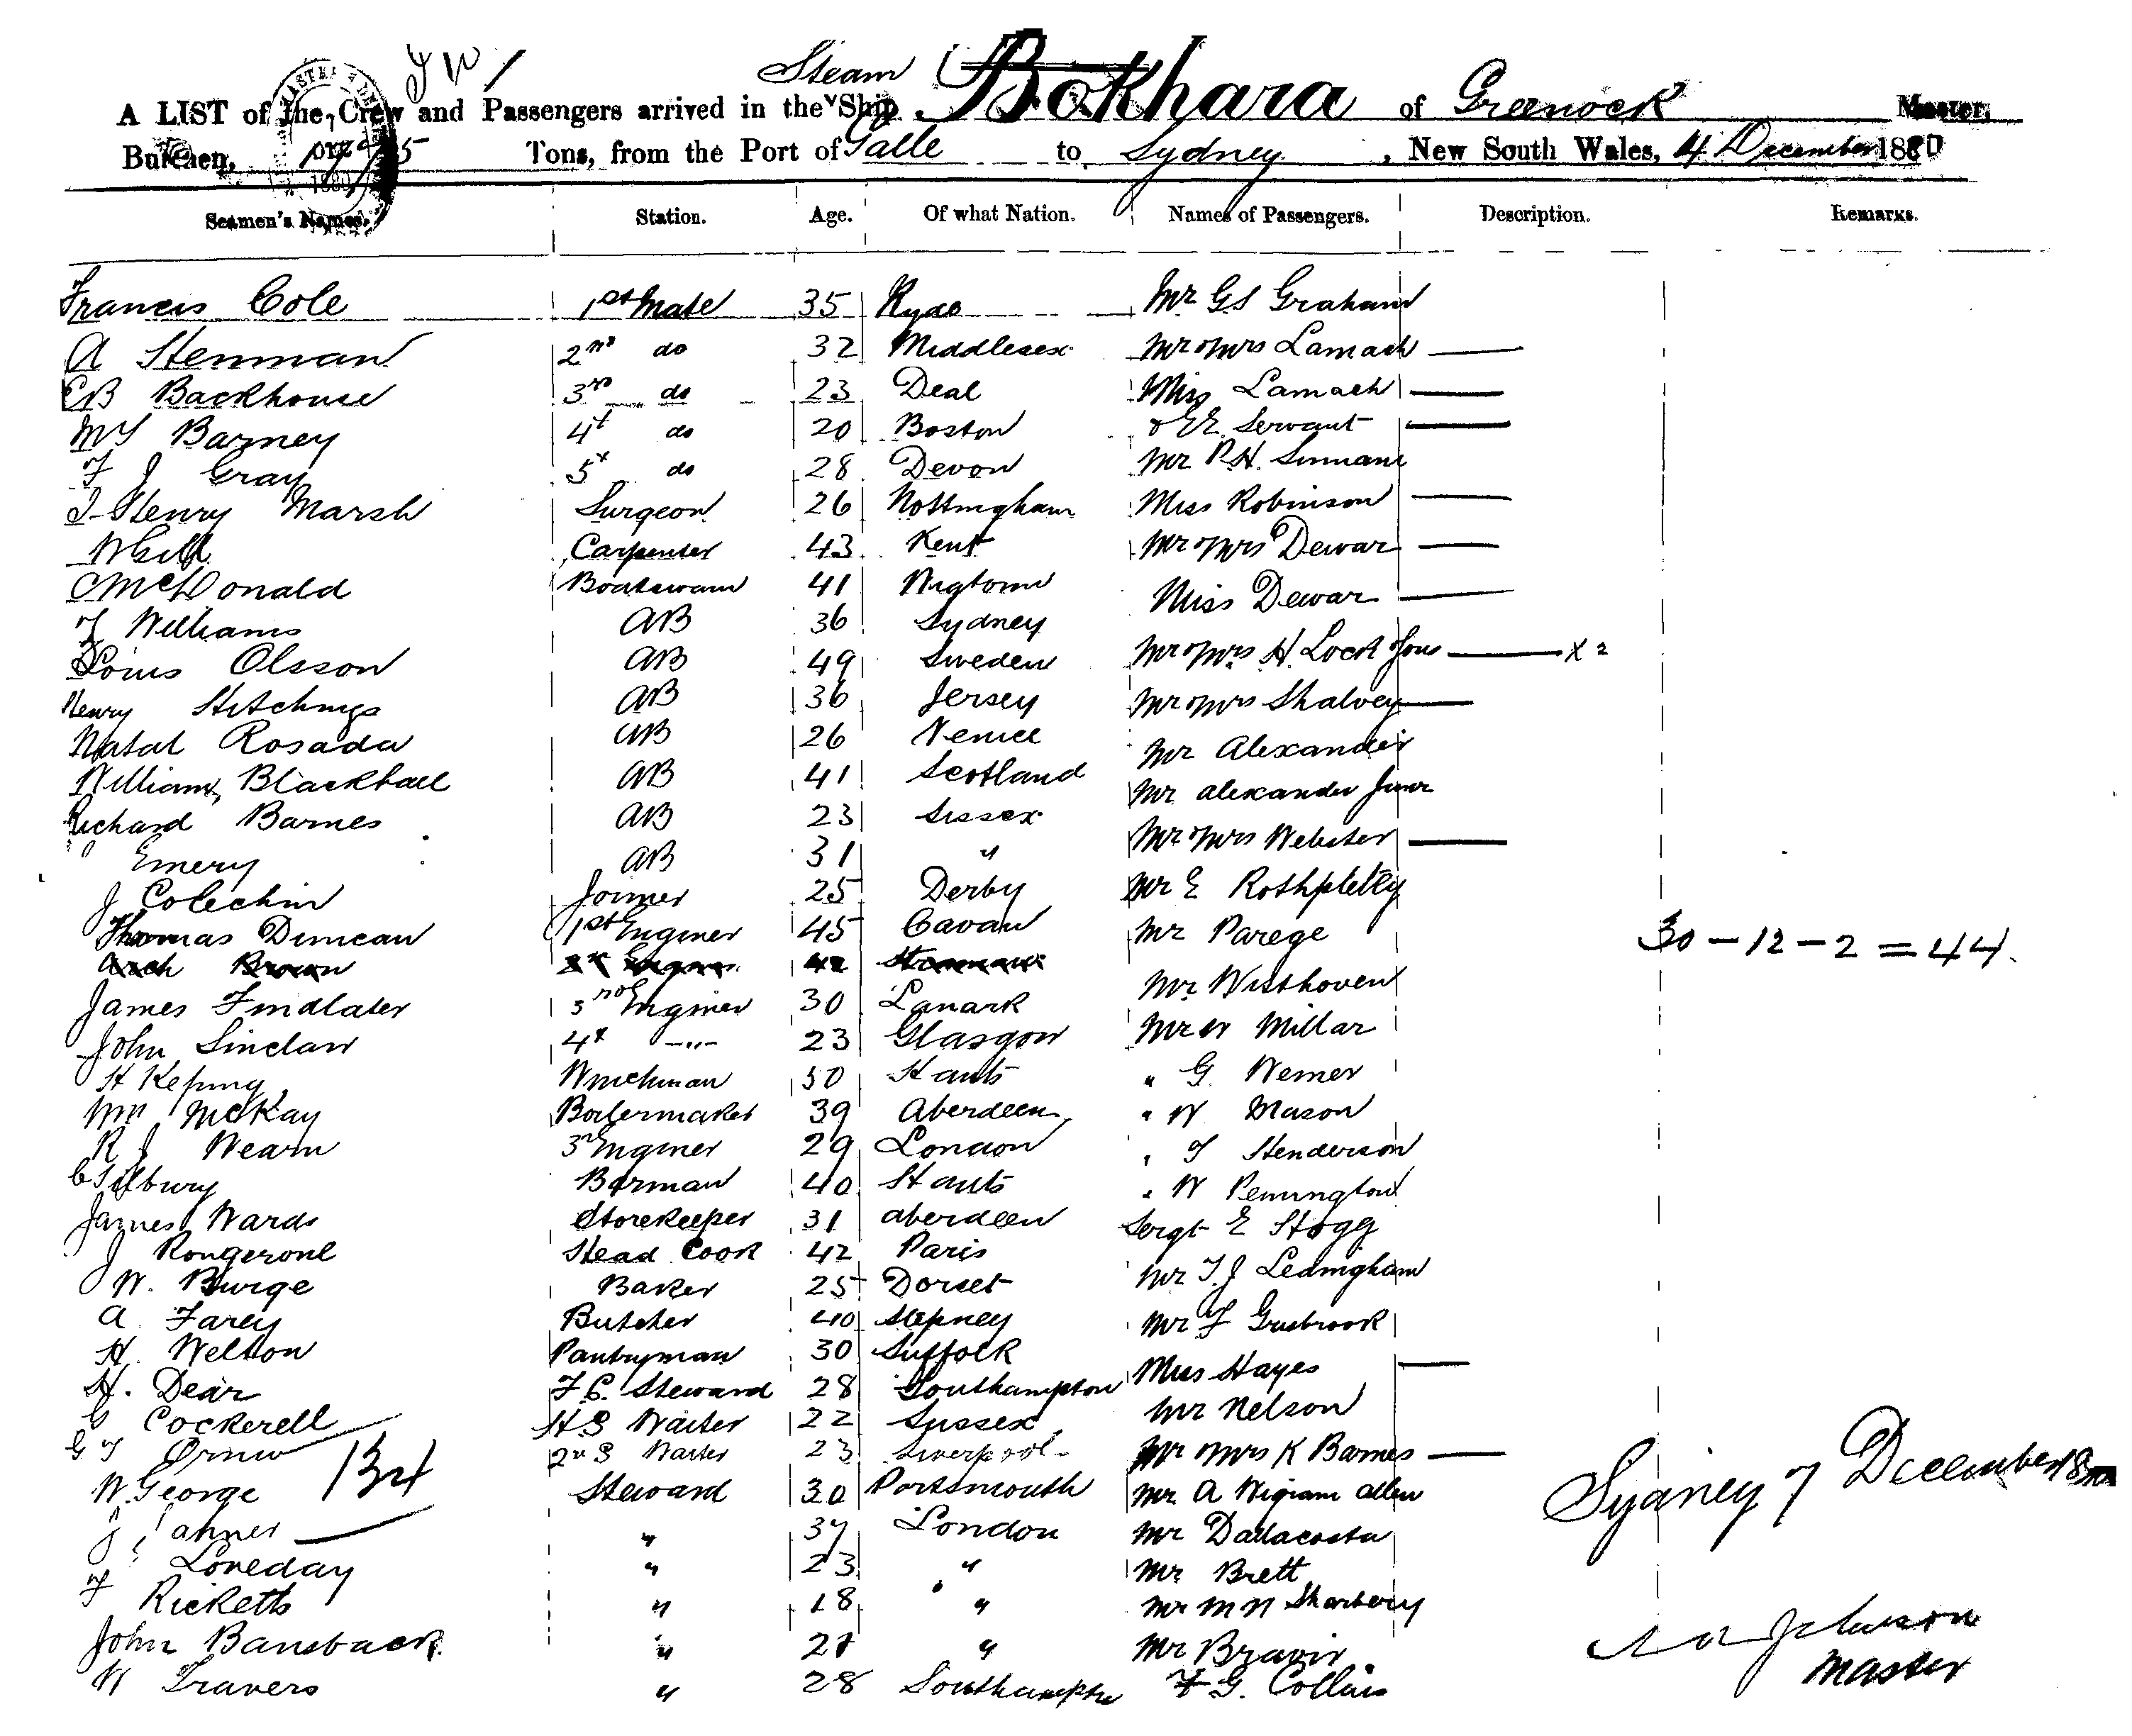 J W /
Steam
A LIST of the Crew and Passengers arrived in the Ship Bokhara of Greenock Master,
Burthen, Tons, from the Port of Galle to Sydney, New South Wales, 4 December 1880
Seamen's Names. Station. Age. Of what Nation. Names of Passengers. Description. Remarks.
Francis Cole 1st Mate 35 Ryde Mr G S Graham
A Stenman 2nd do 32 Middlesex Mr & Mrs Lamach —
C B Backhouse 3rd do 23 Deal Miss Lamach —
Barney 4th do 20 Boston & Servant —
F J Gray 5th do 28 Devon Mr P. H.
Henry Marsh Surgeon 26 Nottingham Miss Robinson —
W Gill Carpenter 43 Kent Mr & Mrs Dewar —
McDonald Boatswain 41 Wigtown Miss Dewar —
Williams AB 36 Sydney
Louis Olsson AB 49 Sweden Mr & Mrs H. Lock —— x 2
Henry Hitchings AB 36 Jersey Mr & Mrs Shalvey —
Natal Rosada AB 26 Venice Mr Alexander
William Blackhall AB 41 Scotland Mr Alexander Junr
Richard Barnes AB 23 Sussex Mr & Mrs Webster —
Emery AB 31 "
J Colechin Joiner 25 Derby Mr E
Thomas Duncan 1st Enginer 45 Cavan Mr Parege 30 – 12 – 2 = 44.
Brown
James Findlater 3rd Enginer 30 Lanark Mr Wisthoven
John Sinclair 4th –"– 23 Glasgow Mr W Millar
H Keping Winchman 30 Hants " G. Werner
Wm McKay Boilermaker 39 Aberdeen " W Mason
R J Wearn 3rd Enginer 29 London " T Henderson
C Tilbury Barman 40 Hants " W Pennington
James Wards Storekeeper 31 Aberdeen Sergt E Hogg
J Rongerone Head Cook 42 Paris
W. Burge Baker 25 Dorset Mr T. J Ledingham
A. Farey Butcher 40 Stepney Mr F Grusbrook
H. Welton Pantryman 30 Suffolk Miss Hayes —
H. Dear F. C. Steward 28 Southampton
G Cockerell H. S Waiter 22 Sussex Mr Nelson
G T 2nd S Waiter 23 Liverpool Mr & Mrs K Barnes —
W. George 134 Steward 30 Portsmouth Mr A Wigram Allen Sydney 7 December 1880
J " 37 London Mr Dallacosta
Loveday " 23 " Mr Brett
F Ricketts " 18 " Mr M N
John Bansback " 27 " Mr Bravir Johnson
W Travers " 28 Southampton F G. Collins Master